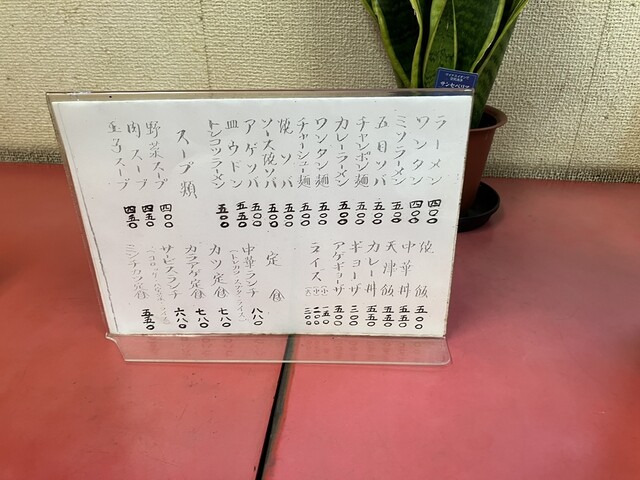 ラーメン 四〇〇
ワンタン 四〇〇
ミソラーメン 五〇〇
五目ソバ 五五〇
チャンポン麺 五五〇
カレーラーメン 五〇〇
ワンタン麺 五〇〇
チャーシュー麺 五〇〇
焼ソバ 五〇〇
ソース焼ソバ 五〇〇
アゲソバ 五〇〇
皿ウドン 五五〇
トンコツラーメン 五〇〇
スープ類
野菜スープ 四〇〇
肉スープ 四五〇
玉子スープ 四五〇
焼飯 五〇〇
中華丼 五五〇
天津飯 五五〇
カレー丼 五五〇
ギョーザ 三〇〇
アゲギョーザ 五〇〇
ライス (小) 一五〇
(中) 二〇〇
(大) 三〇〇
定食
中華ランチ 八八〇
カツ定食 七八〇
カラアゲ定食 七八〇
サービスランチ 六八〇
ミンチカツ定食 五五〇
サンセベリア